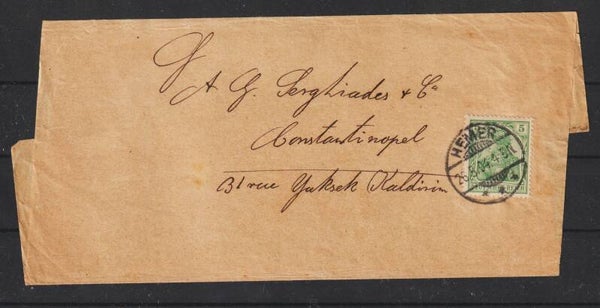 A G. Serghiades & Co
Constantinopel
31 rue Yuksek Kaldirim
5
HEMER